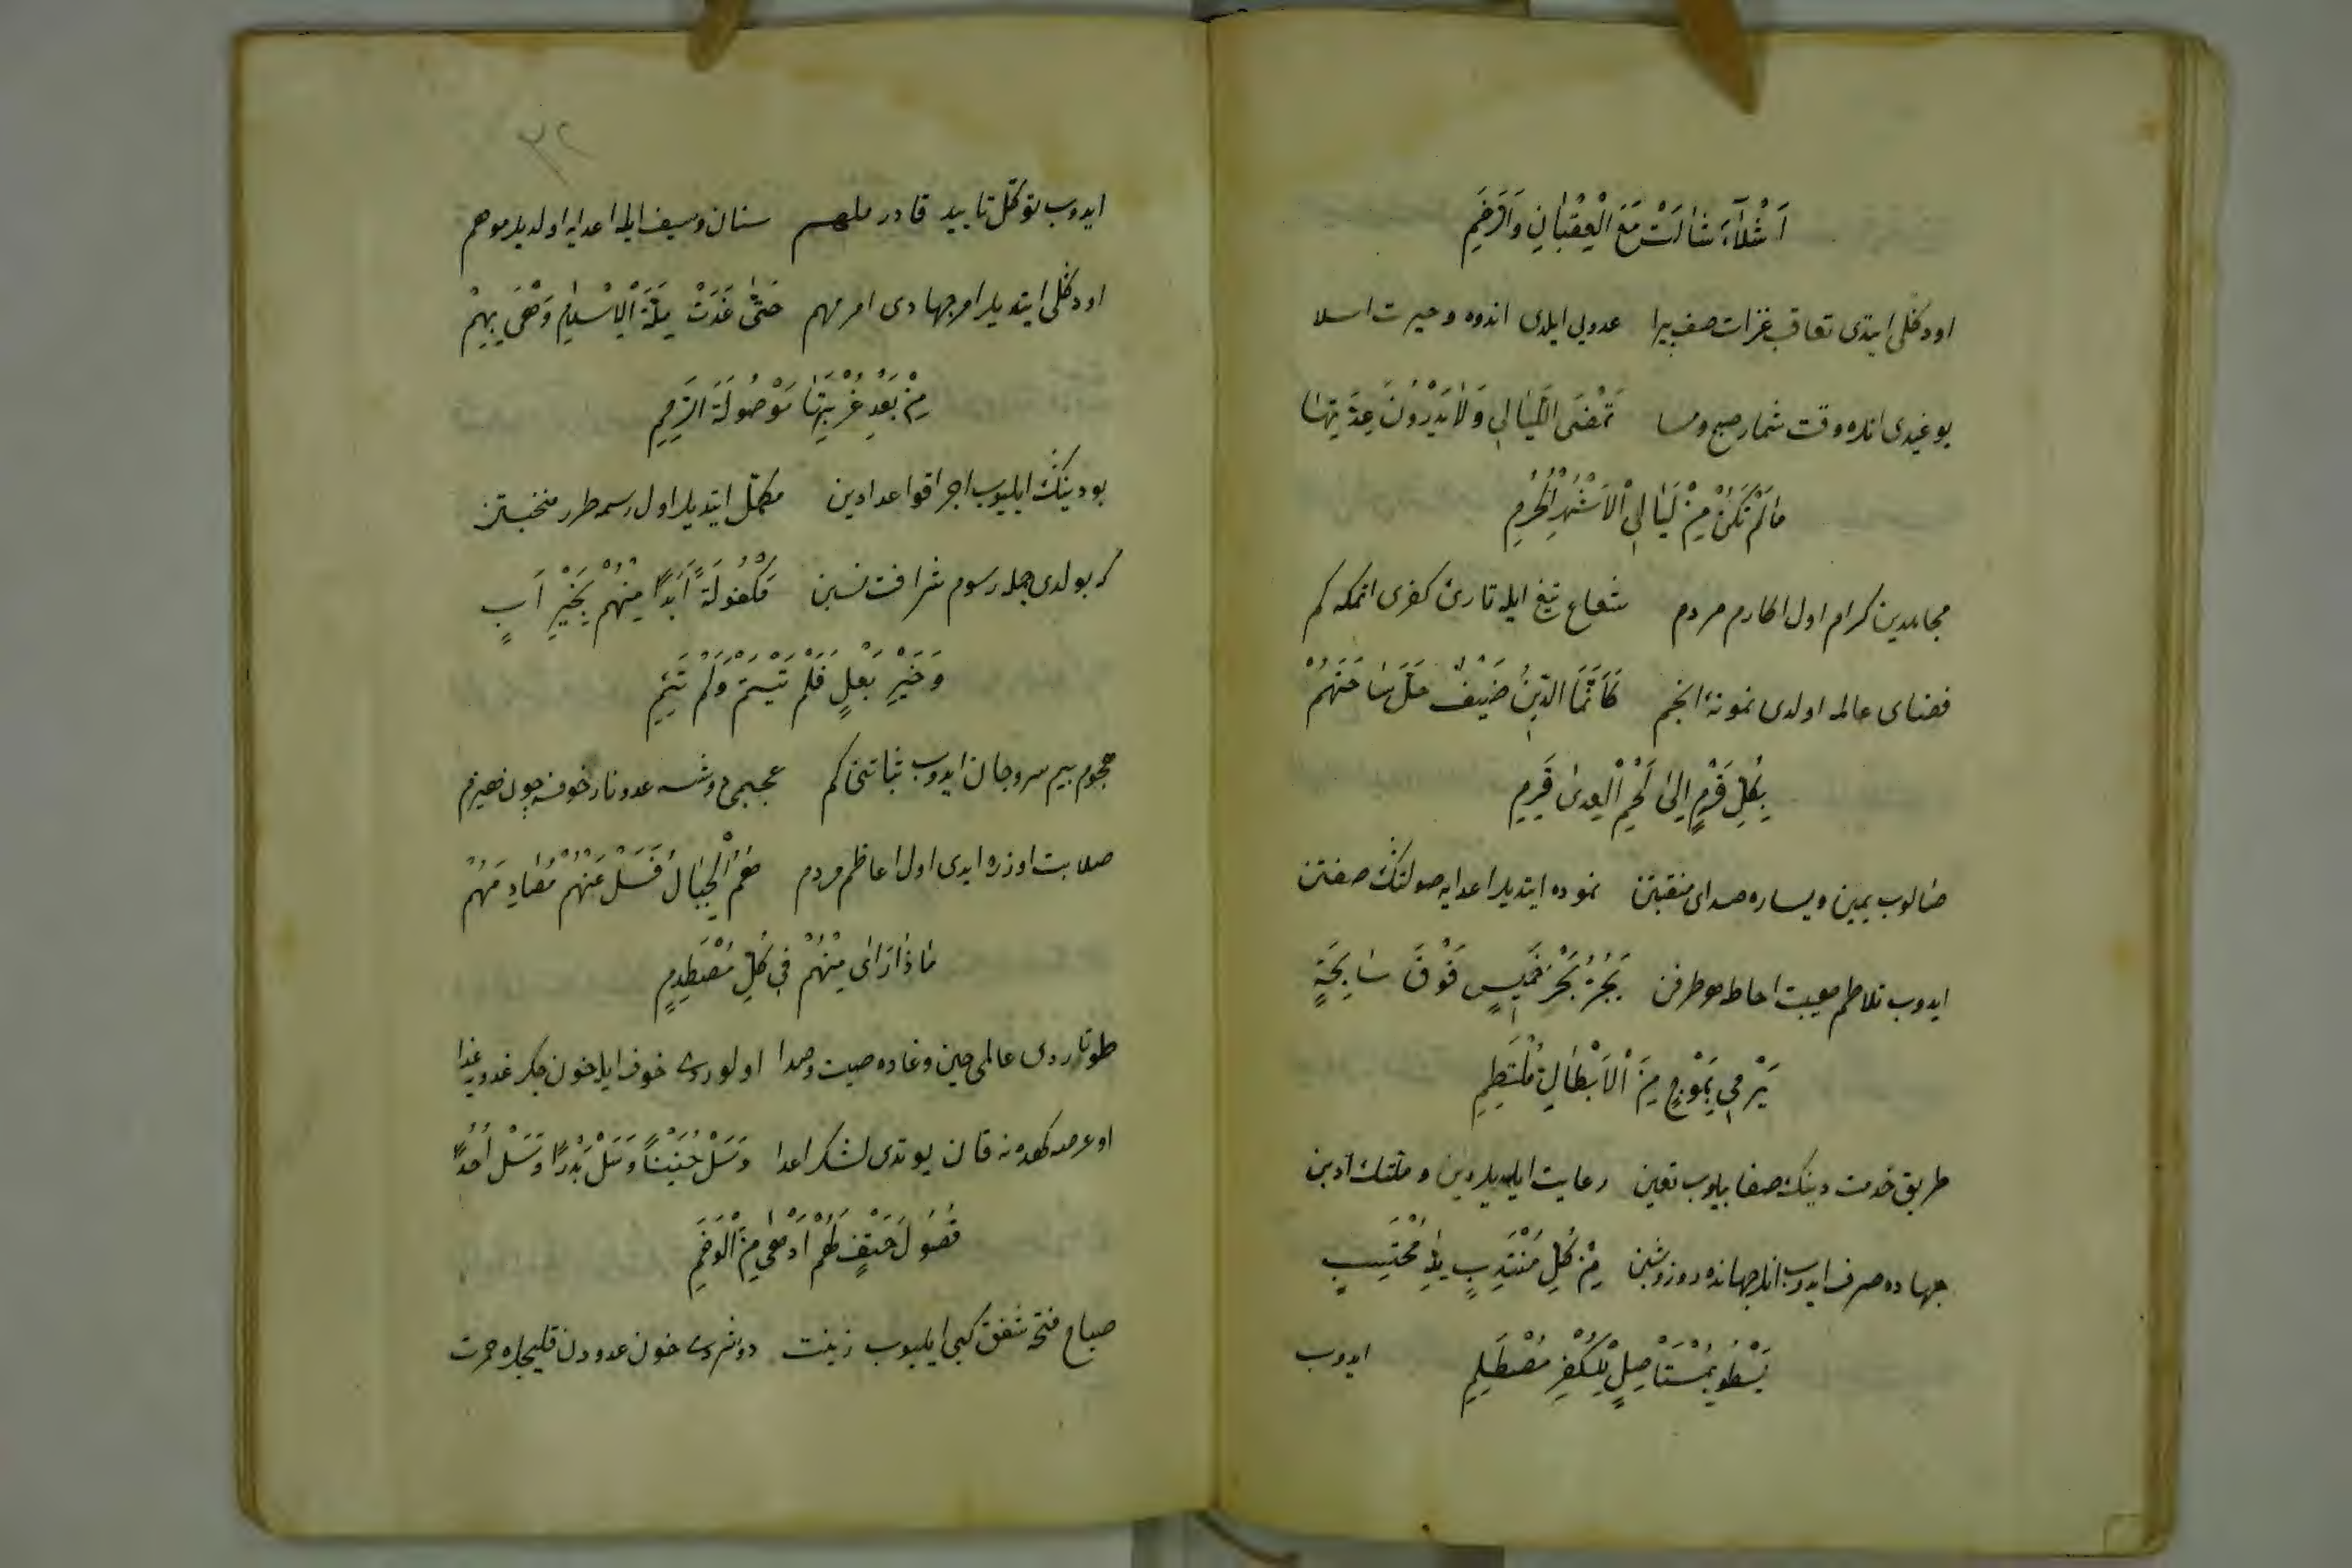 اَشْلَآءَ شَالَتْ مَعَ الْعِقْبَانِ وَالرَّخَمِ
اودكلى ايتدى تعاقب غزات صف پيرا عدويى ايلدى اندوه وحيرت اسلا
يوغيدى انده وقت شمار صبح ومسا تَمْضَى اللَّيَالِي وَلَا يَدْرُونَ عِدَّتِهَا
مَالَمْ تَكُنْ مِنْ لَيَالِي الْاَشْهُرِ الْحُرُمِ
مجاهدين كرام اول اكارم مردم شعاع تيغ ايله تارئ كفرى اتمكه كم
فضاى عالمه اولدى نمونۀ انجم كَاَنَّمَا الدِّينُ ضَيْفٌ حَلَّ سَاحَتَهُمْ
بِكُلِّ قَرْمٍ اِلَى لَحْمِ الْعِدَى قَرِمِ
صالوب يمين ويساره صداى منقبتن نموده ايتديلر اعدايه صولتك صفتن
ايدوب تلاطم هيبت احاطه هر طرفن يَجُرُّ بَحْرَ خَمِيسٍ فَوْقَ سَابِحَةٍ
يَرْمِي بِمَوْجٍ مِنَ الْاَبْطَالِ مُلْتَطِمِ
طريق خدمت دينك صفا بيلوب تعين رعايت ايلديلر دين وملتك آدبن
جهاده صرف ايدوب انلر جهانده روز وشبن مِنْ كُلِّ مُنْتَدِبٍ لِلّٰهِ مُحْتَسِبٍ
يَسْطُو بِمُسْتَأْصِلٍ لِلْكُفْرِ مُصْطَلِمِ
ايدوب
٣٢
ايدوب توكل تاييد قادر ملهم سنان وسيف ايله اعدايه اولديلر موهم
اودكلى ايتديلر امر جهادى امر مهم حَتَّى غَدَتْ مِلَّةُ الْاِسْلَامِ وَهْىَ بِهِمْ
مِنْ بَعْدِ غُرْبَتِهَا مَوْصُولَةَ الرَّحِمِ
بو دينك ايليوب اجرا قواعد ادين مكمل ايتديلر اول رسمه طرر منخبتن
كه بولدى جمله رسوم شرافت نسبن مَكْفُولَةً اَبَدًا مِنْهُمْ بِخَيْرِ اَبٍ
وَخَيْرِ بَعْلٍ فَلَمْ تَيْتَمْ وَلَمْ تَئِمِ
هجوم بيم سر وجان ايدوب ثباتنى كم عجبمى دوشسه عدو نار خوفه چون هيزم
صلابت اوزره ايدى اول اعاظم مردم هُمُ الْجِبَالُ فَسَلْ عَنْهُمْ مُصَادِمَهُمْ
مَاذَا رَاَى مِنْهُمْ فِي كُلِّ مُصْطَدِمٍ
طوتاردى عالمى حين وغاده صيت وصدا اولوردى خوف ايله خون جكر عدويه غدا
او عرصه كهده نه قان يوتدى لشكر اعدا وَسَلْ حُنَيْنًا وَسَلْ بَدْرًا وَسَلْ اُحُدًا
فُصُولَ حَتْفٍ لَهُمْ اَدْهَى مِنَ الْوَخَمِ
صباح فتحه شفق كبى ايليوب زينت دونردى خون عدودن قليجلره حمرت